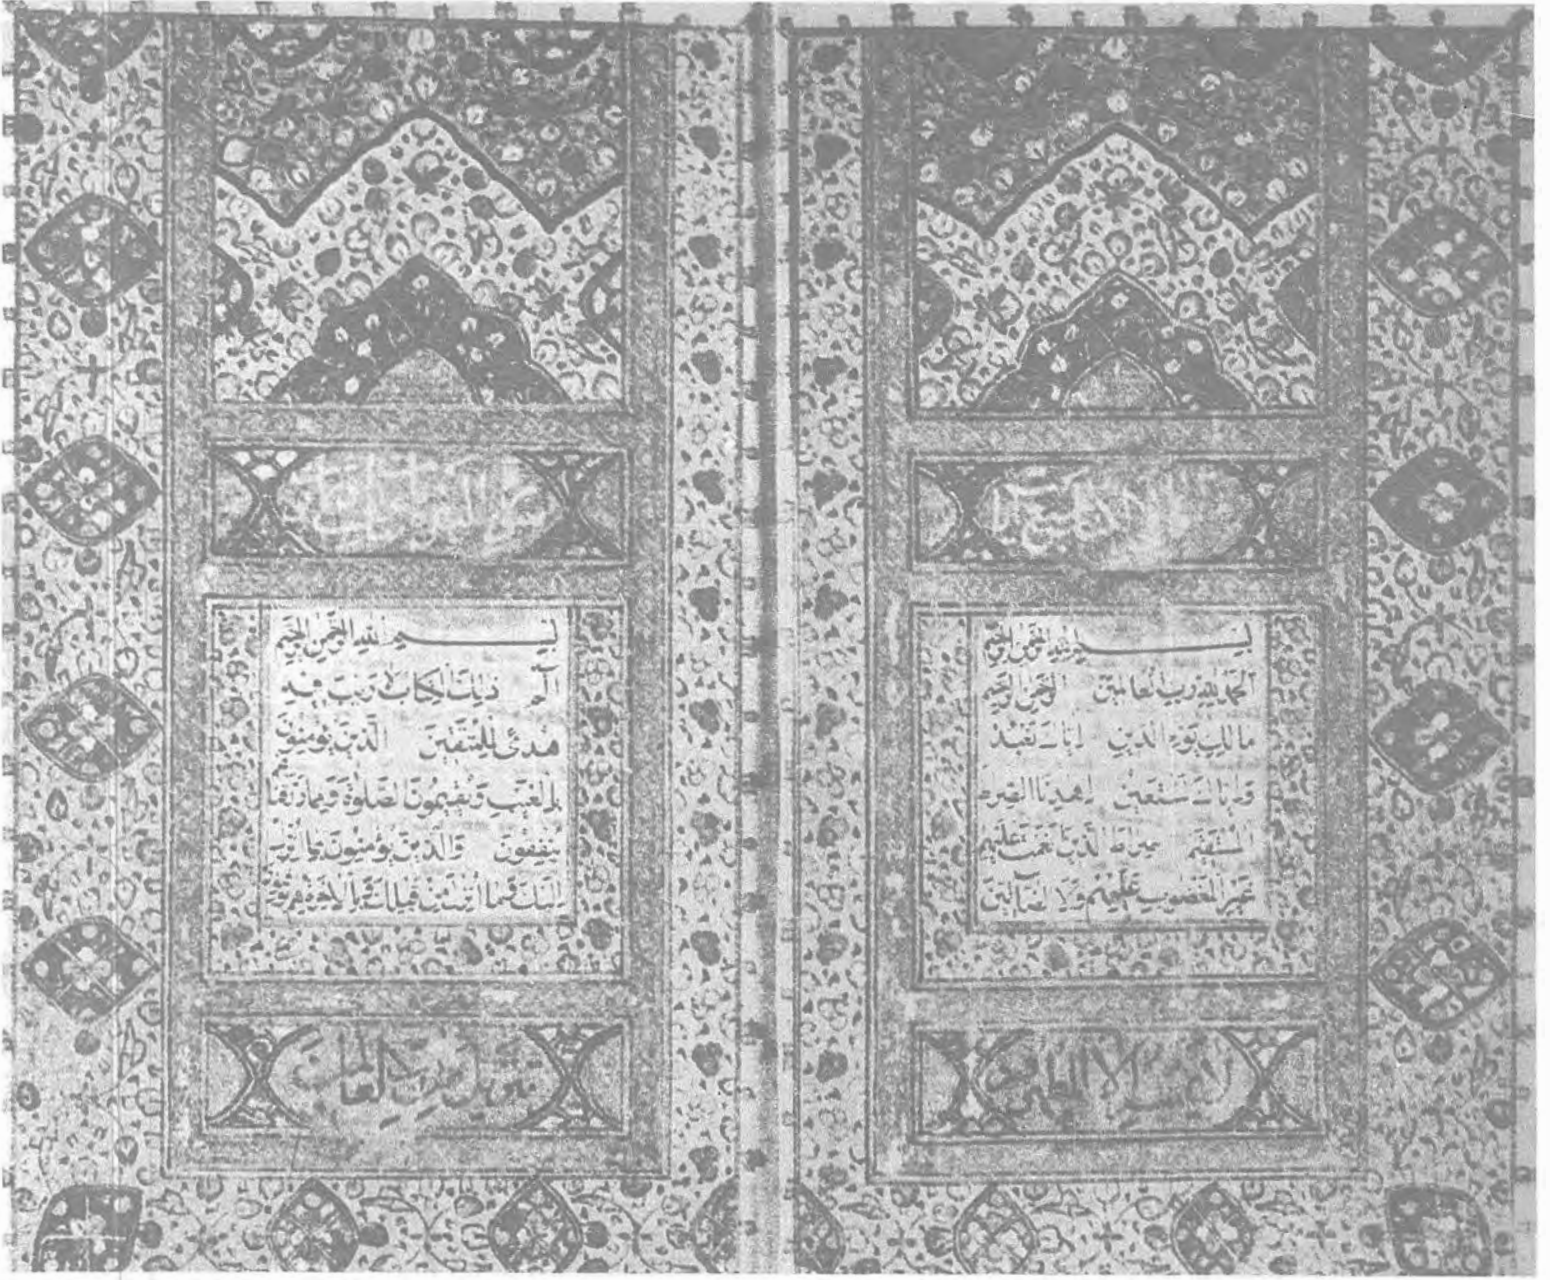 بسم الله الرحمن الرحيم
الحمد لله رب العالمين الرحمن الرحيم
مالك يوم الدين اياك نعبد
واياك نستعين اهدنا الصراط
المستقيم صراط الذين انعمت عليهم
غير المغضوب عليهم ولا الضالين
لا يمسه الا المطهرون
بسم الله الرحمن الرحيم
الم ذلك الكتاب لا ريب فيه
هدى للمتقين الذين يؤمنون
بالغيب ويقيمون الصلوة ومما رزقناهم
ينفقون والذين يؤمنون بما انزل
اليك وما انزل من قبلك وبالاخرة هم يوقنون
تنزيل من رب العالمين